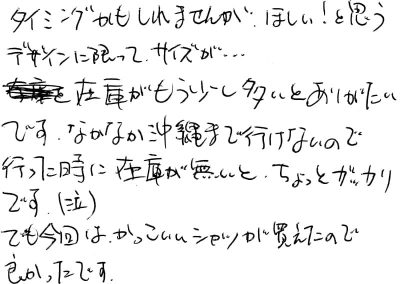 タイミングかもしれませんが、ほしい！と思う
デザインに限って、サイズが…
在庫がもう少し多いとありがたい
です。なかなか沖縄まで行けないので
行った時に在庫が無いと、ちょっとガッカリ
です。(泣)
でも今回は、かっこいいシャツが買えたので
良かったです。